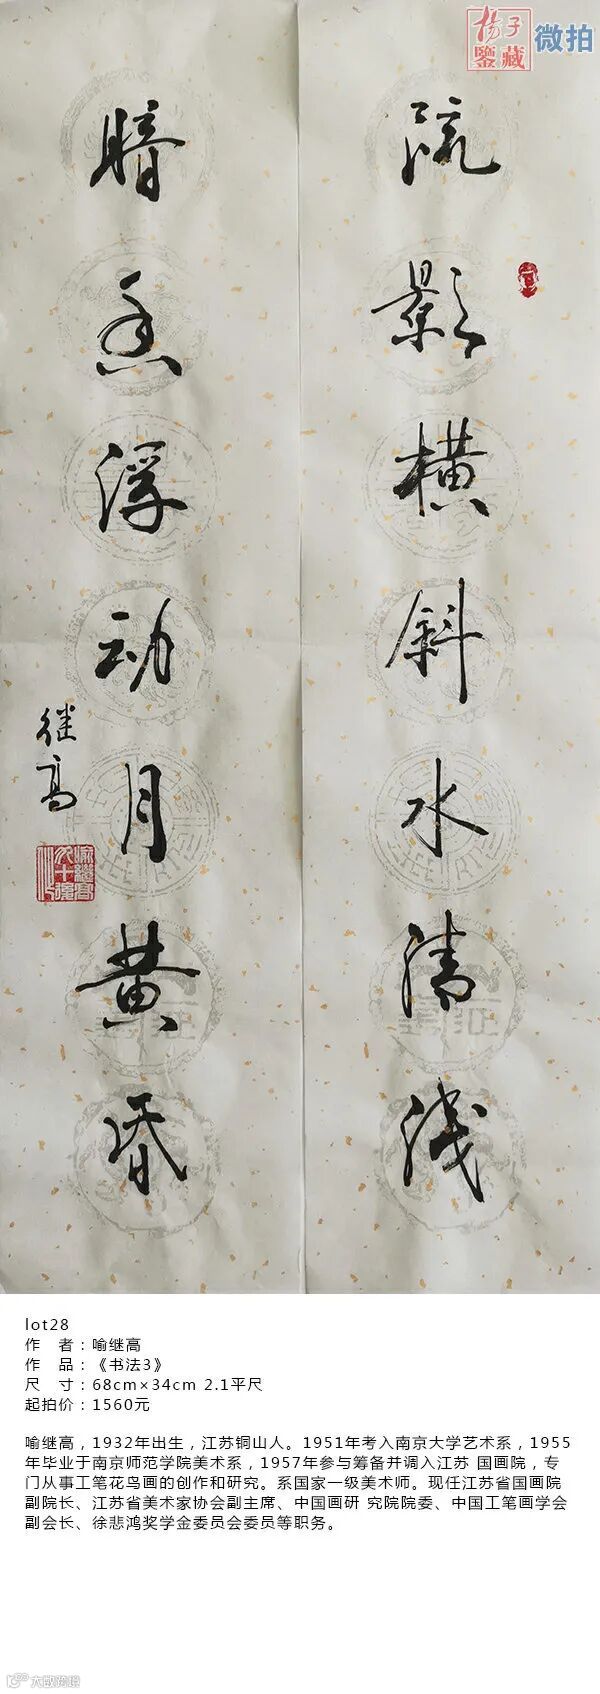 杨子
鉴藏
微拍
疏影横斜水清浅
暗香浮动月黄昏
继高
lot28
作 者：喻继高
作 品：《书法3》
尺 寸：68cm×34cm 2.1平尺
起拍价：1560元
喻继高，1932年出生，江苏铜山人。1951年考入南京大学艺术系，1955
年毕业于南京师范学院美术系，1957年参与筹备并调入江苏 国画院，专
门从事工笔花鸟画的创作和研究。系国家一级美术师。现任江苏省国画院
副院长、江苏省美术家协会副主席、中国画研 究院院委、中国工笔画学会
副会长、徐悲鸿奖学金委员会委员等职务。
大数跨境